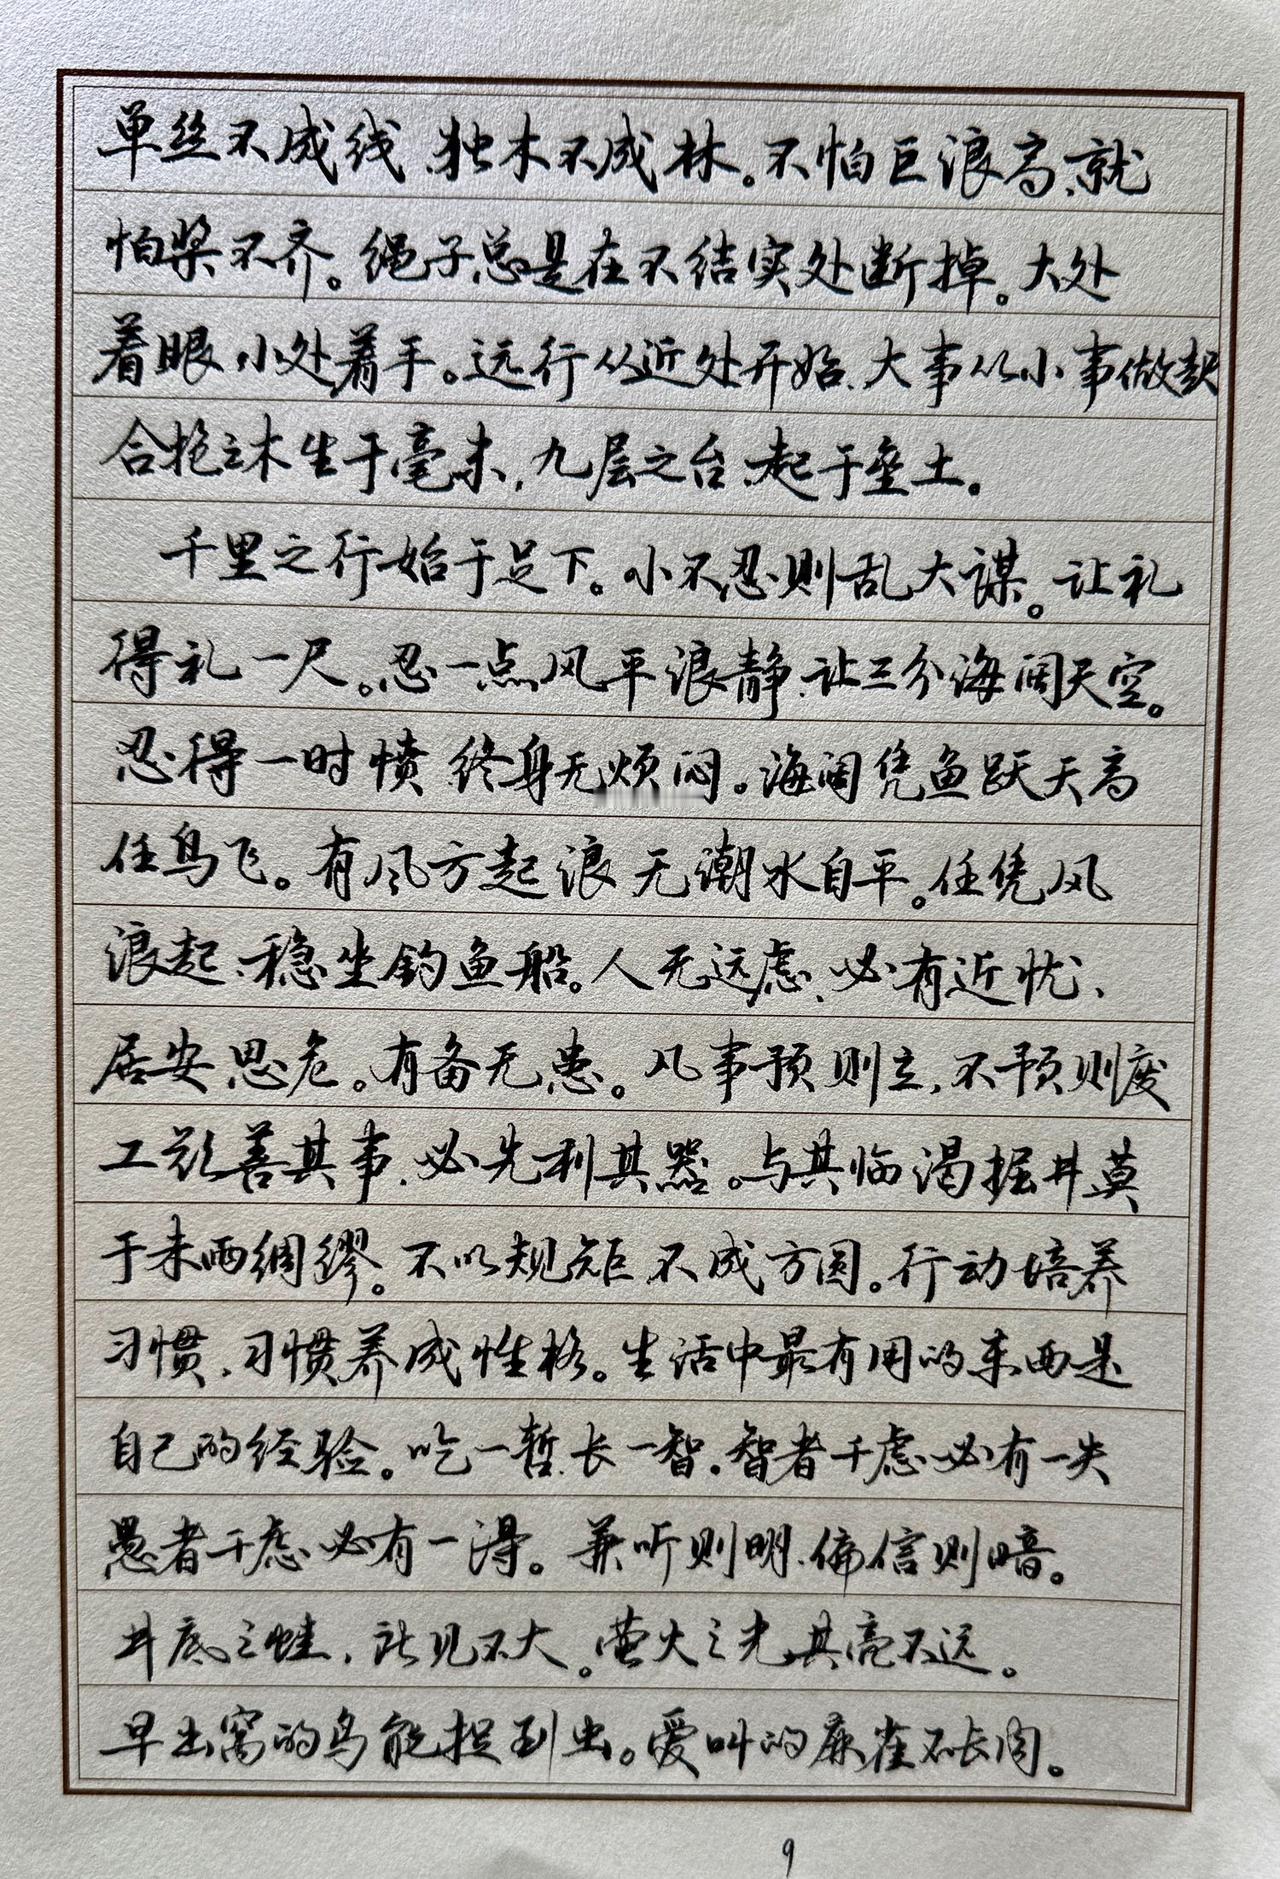 单丝不成线、独木不成林。不怕巨浪高、就
怕桨不齐。绳子总是在不结实处断掉。大处
着眼、小处着手。远行从近处开始、大事从小事做起
合抱之木生于毫末，九层之台、起于垒土。
千里之行始于足下。小不忍则乱大谋。让礼
得礼一尺。忍一点风平浪静、让三分海阔天空。
忍得一时愤 终身无烦闷。海阔凭鱼跃天高
任鸟飞。有风方起浪 无潮水自平。任凭风
浪起、稳坐钓鱼船。人无远虑、必有近忧、
居安思危。有备无患。凡事预则立，不予预则废
工欲善其事、必先利其器。与其临渴掘井莫
于未雨绸缪。不以规矩 不成方圆。行动培养
习惯，习惯养成性格。生活中最有用的东西是
自己的经验。吃一暂、长一智。智者千虑必有一失
愚者千虑必有一得。兼听则明、偏信则暗。
井底之蛙，所见不大。萤火之光其亮不远。
早出窝的鸟能捉到虫。爱叫的麻雀不长肉。
9